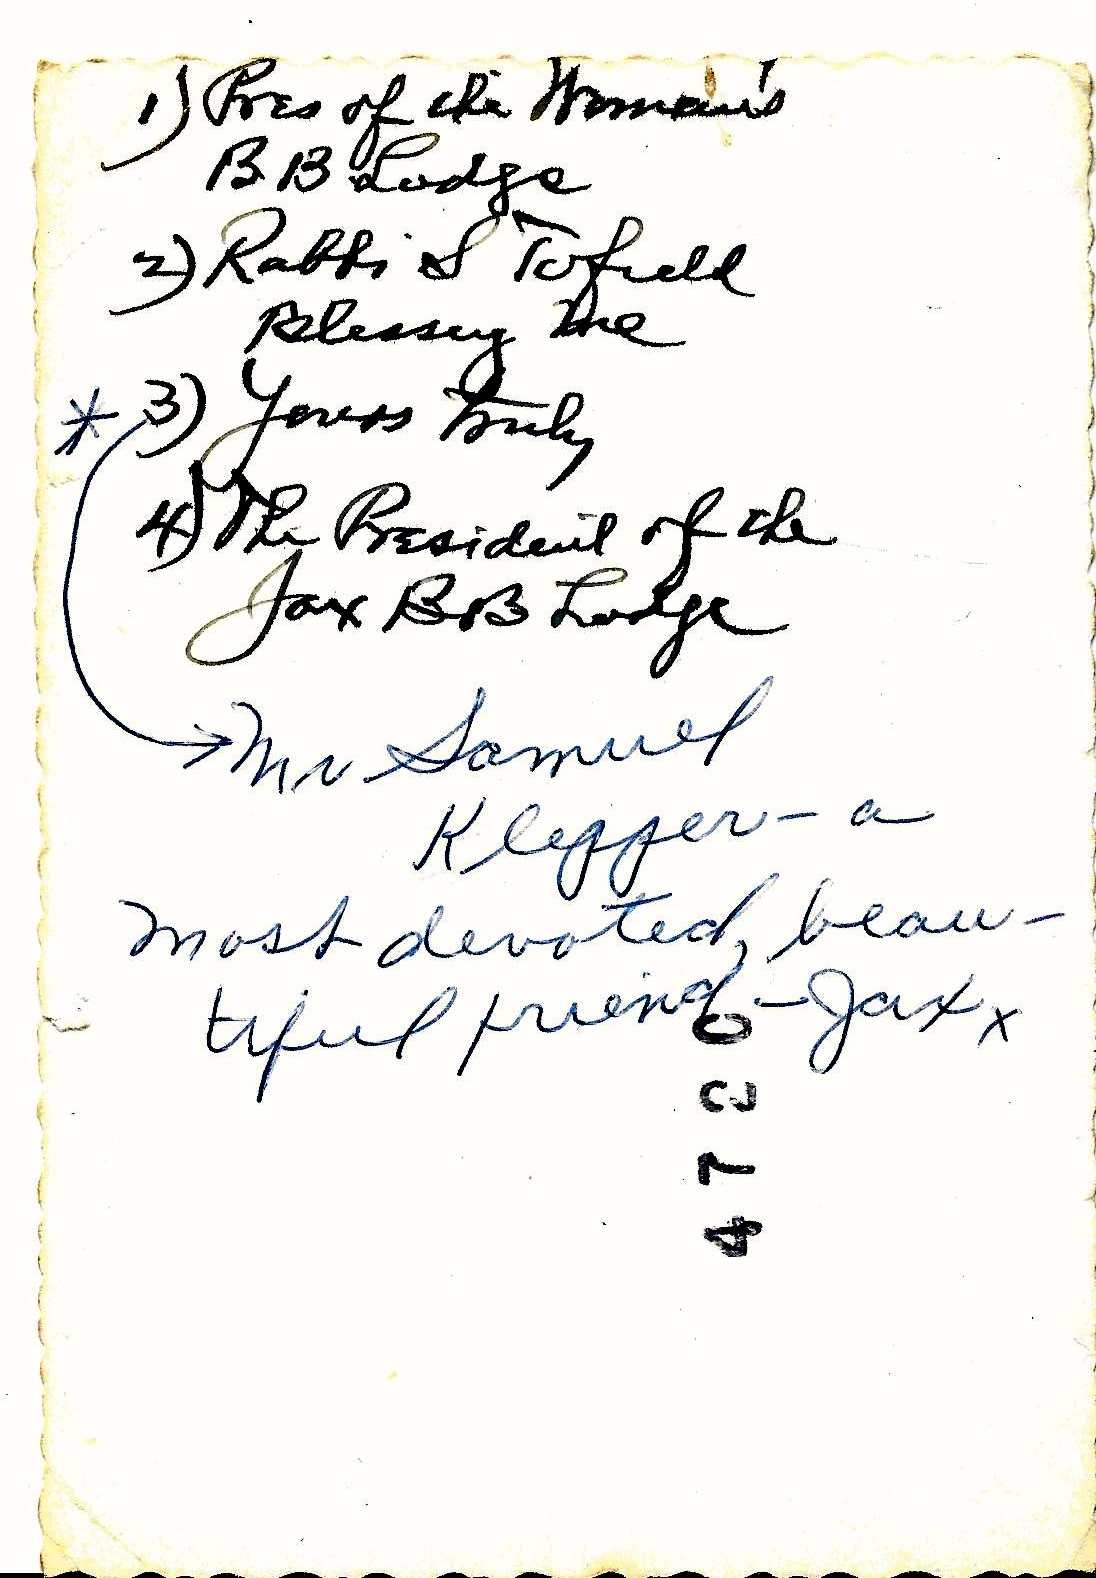 1) Pres of the Woman's
BB Lodge
2) Rabbi S Tofield
Blessing me
* 3) Yours Truly
4) The President of the
Jax BB Lodge
Mr Samuel
Klepper - a
most devoted, beau-
tiful friend - Jax x
4720